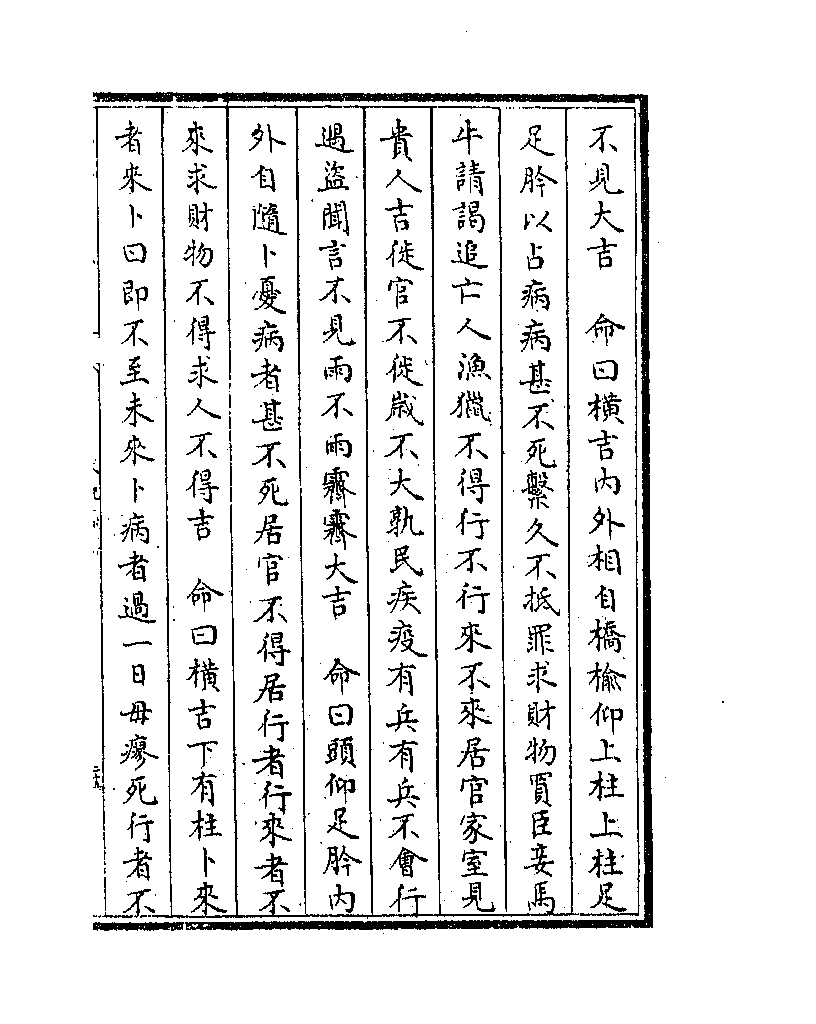 不見大吉　命曰橫吉内外相自橋榆仰上柱上柱足
足肣以占病病甚不死繫久不抵罪求財物買臣妾馬
牛請謁追亡人漁獵不得行不行來不來居官家室見
貴人吉徙官不徙嵗不大孰民疾疫有兵有兵不會行
遇盜聞言不見雨不雨霽霽大吉　命曰頭仰足肣内
外自隨卜憂病者甚不死居官不得居行者行來者不
來求財物不得求人不得吉　命曰橫吉下有柱卜來
者來卜曰即不至未來卜病者過一日毋瘳死行者不